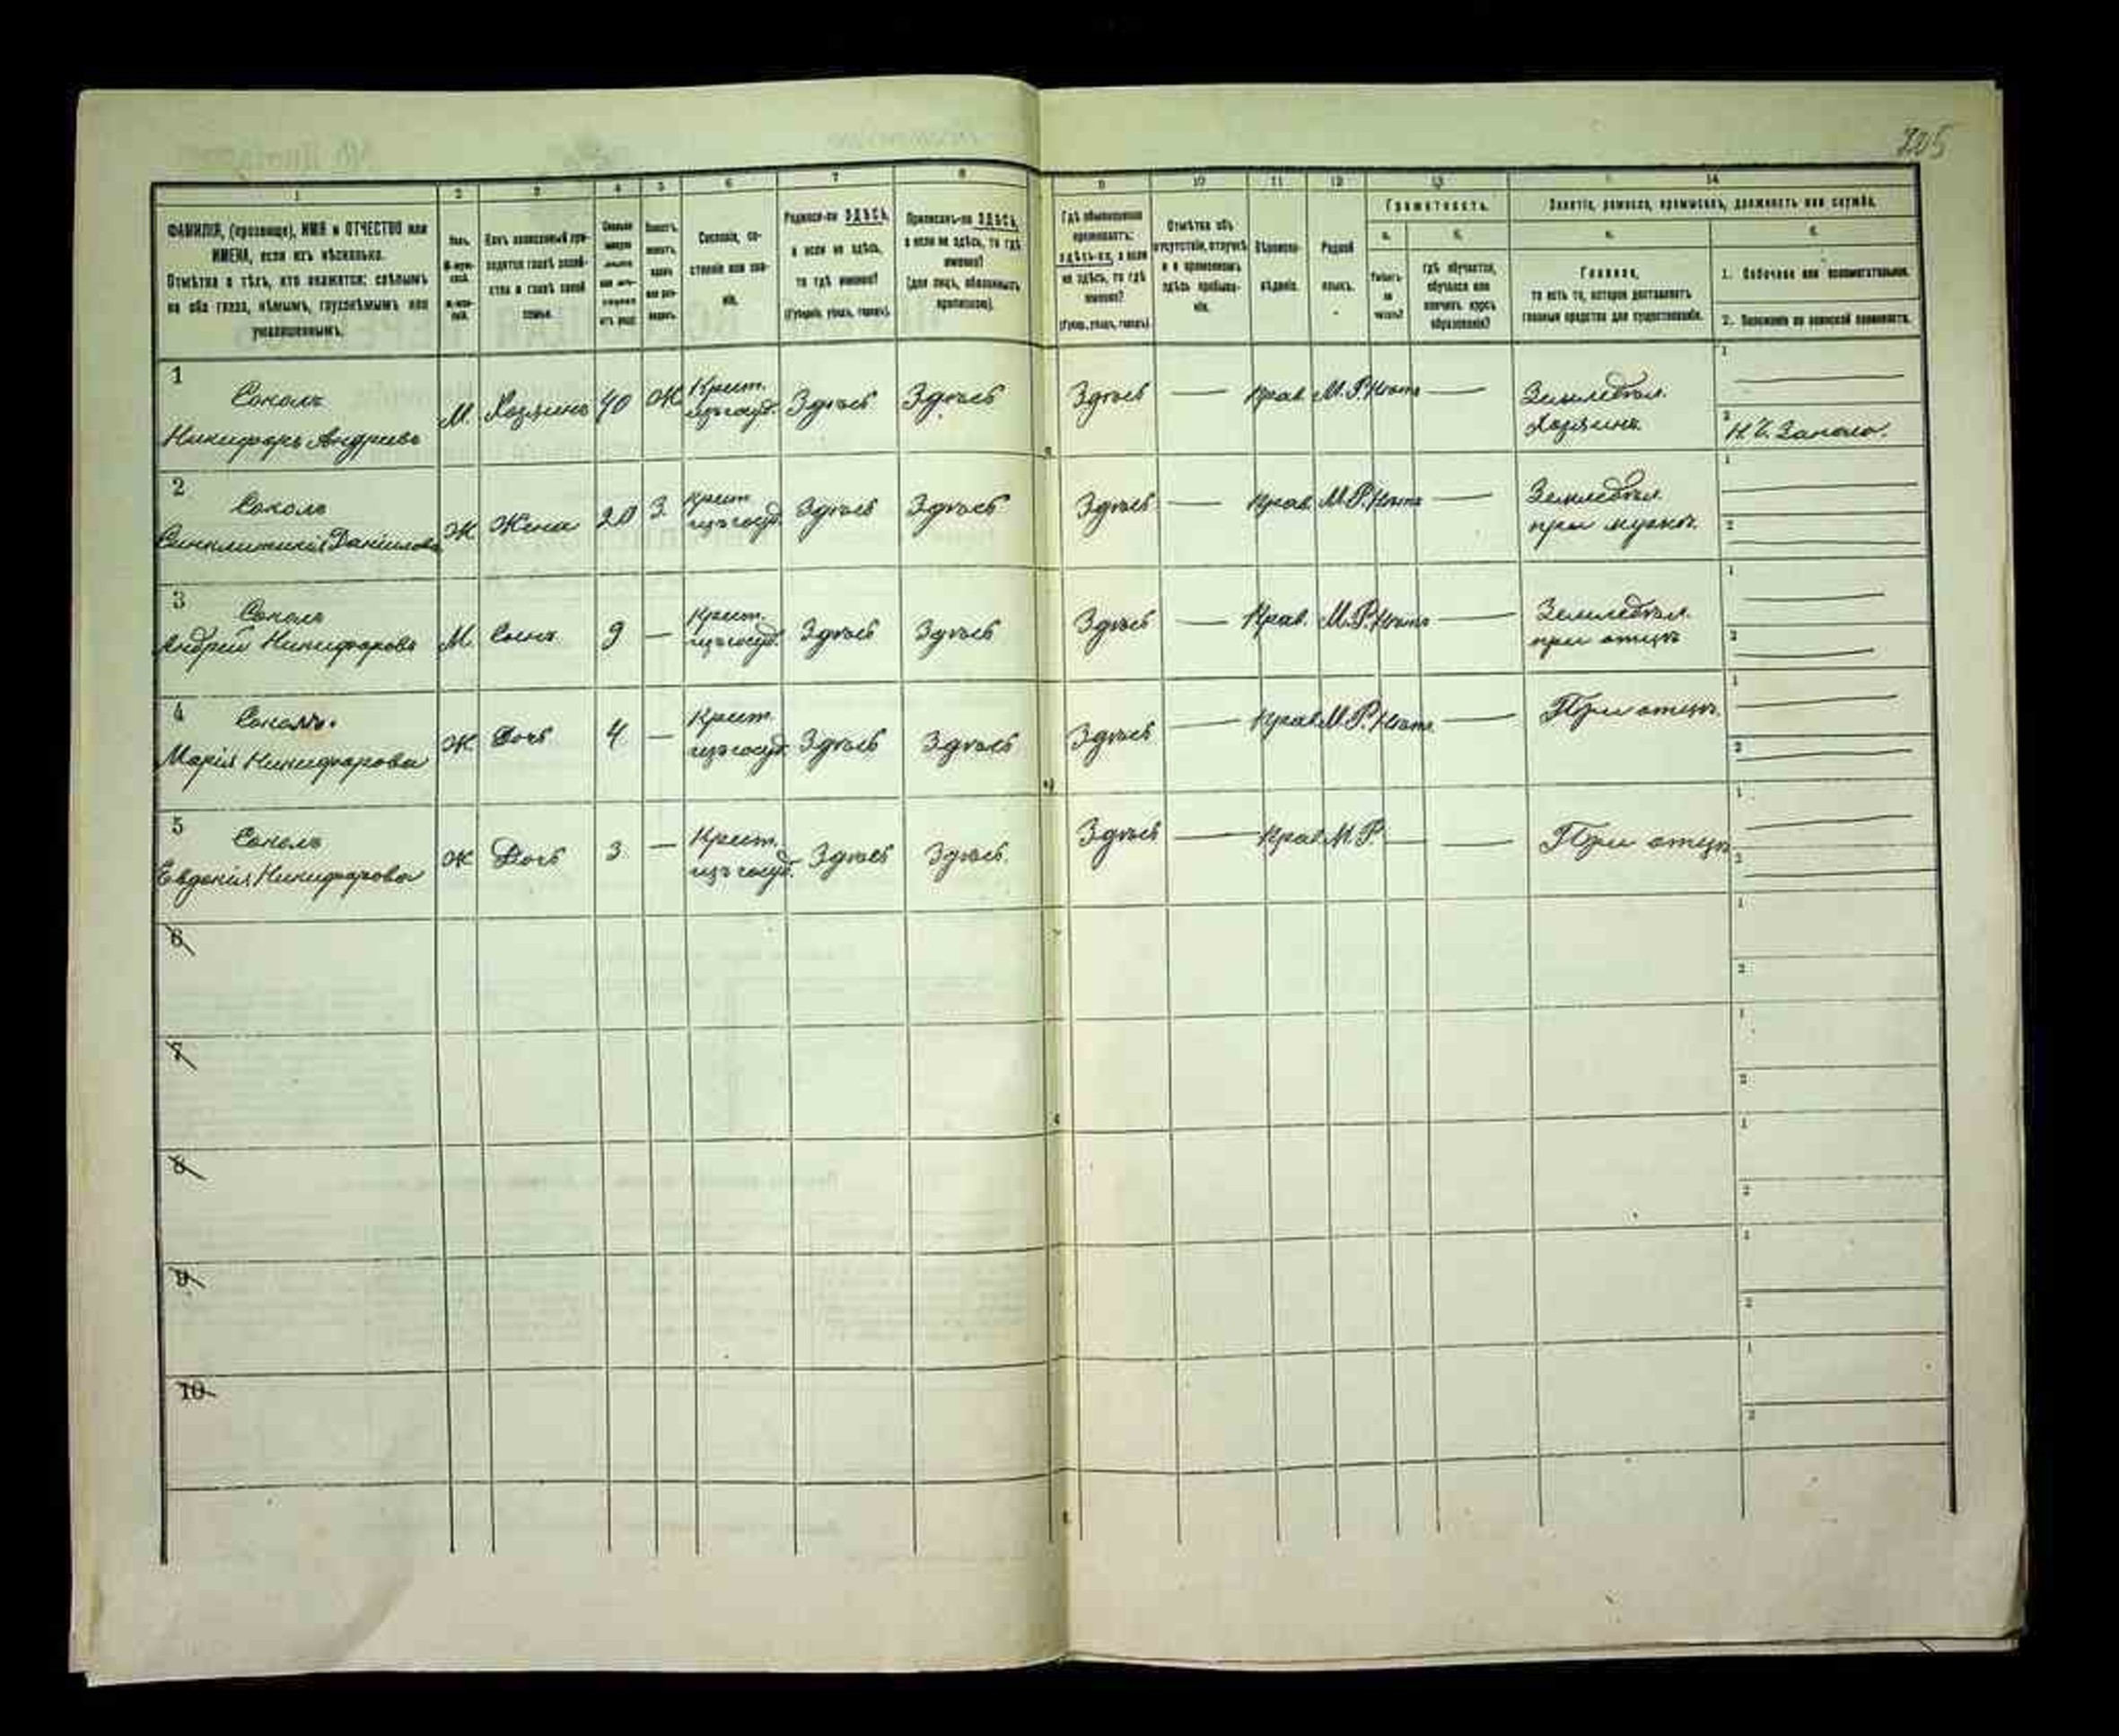 205
1 2 3 4 5 6 7 8 9 10 11 12 13 14
ФАМИЛІЯ, (прозвище), ИМЯ и ОТЧЕСТВО или
ИМЕНА, если ихъ нѣсколько.
Отмѣтка о тѣхъ, кто окажется: слѣпымъ
на оба глаза, нѣмымъ, глухонѣмымъ или
умалишеннымъ.
Родился-ли ЗДѢСЬ,
а если не здѣсь,
то гдѣ именно?
(Губернія, уѣздъ, городъ).
Приписанъ-ли ЗДѢСЬ,
а если не здѣсь, то гдѣ
именно?
(для лицъ, обязанныхъ
припискою).
Гдѣ обыкновенно
проживаетъ:
здѣсь-ли, а если
не здѣсь, то гдѣ
именно?
(Губер., уѣздъ, городъ)
Отмѣтка объ
отсутствіи, отлучкѣ
и о временномъ
здѣсь пребыва-
ніи.
Вѣроиспо-
вѣданіе.
Родной
языкъ.
Грамотность.
а. б.
Умѣетъ-
ли
читать?
Гдѣ обучается,
обучался или
кончилъ курсъ
образованія?
Занятіе, ремесло, промыселъ, должность или служба.
а. б.
Главное,
то есть то, которое доставляетъ
главныя средства для существованія.
1. Побочное или вспомогательное.
2. Положеніе по воинской повинности.
1 Соколъ
Никифоръ Андреевъ
М. Хозяинъ 40 Ж Крест. изъ госуд. Здѣсь Здѣсь Здѣсь — Прав. М.Р. Нѣтъ — Земледѣл. Хозяинъ 1 — 2
2 Соколъ
Синклитикія Даніилова
Ж Жена 20 З Крест. изъ госуд. Здѣсь Здѣсь Здѣсь — Прав. М.Р. Нѣтъ — Земледѣл. при мужѣ 1 — 2 —
3 Соколъ
Андрей Никифоровъ
М. Сынъ 9 — Крест. изъ госуд. Здѣсь Здѣсь Здѣсь — Прав. М.Р. Нѣтъ — Земледѣл. при отцѣ 1 — 2 —
4 Соколъ.
Марія Никифорова
Ж Дочь 4 — Крест. изъ госуд. Здѣсь Здѣсь Здѣсь — Прав. М.Р. Нѣтъ — При отцѣ 1 — 2 —
5 Соколъ
Евдокія Никифорова
Ж Дочь 3 — Крест. изъ госуд. Здѣсь Здѣсь. Здѣсь — Прав. М.Р. — — При отцѣ 1 — 2 —
6 1 2
7 1 2
8 1 2
9 1 2
10 1 2